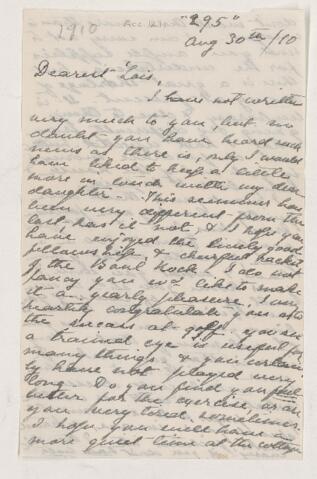 1910 Acc 12
"295"
Aug 30th/10
Dearest Lois,
I have not written
very much to you, but no
doubt you have heard such
news as there is, only I would
have liked to keep a little
more in touch with my dear
daughter. This summer has
been very different from the
last, has it not, & I hope you
have enjoyed the lively good-
fellowship & cheerful racket
of the I do not
fancy you wd like to make
it a yearly pleasure. I am
heartily congratulate you on
the success at golf, you see
a trained eye is useful for
many things & you certain
ly have not played very
long. Do you find you feel
better for the exercise, or are
you very tired sometimes.
I hope you will have a
more quiet time at the cottage